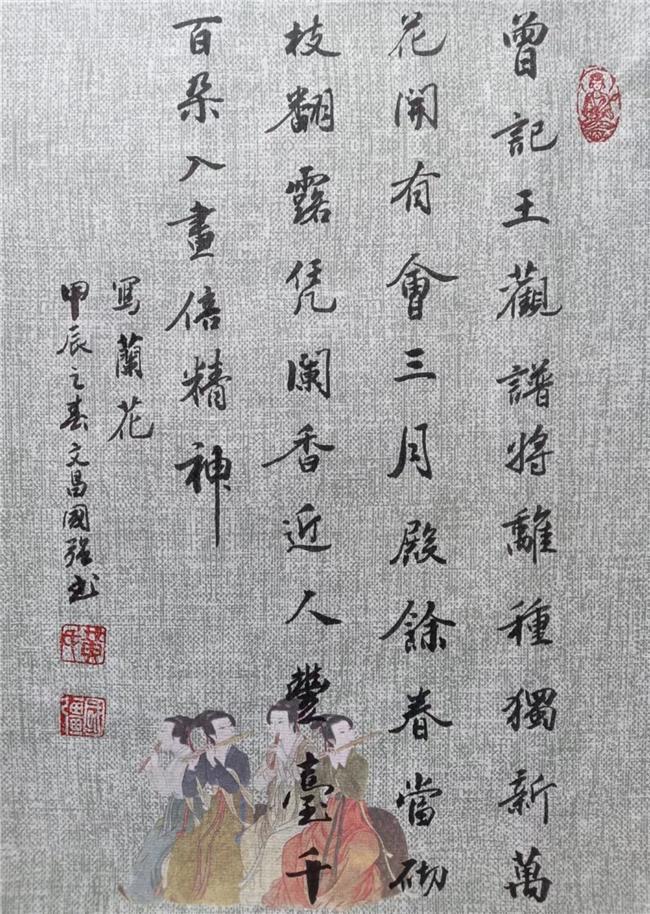 曾記王觀譜將離種獨新萬
花開有會三月殿餘春當砌
枝翻露凭闌香近人豐臺千
百朵入畫倍精神
寫蘭花
甲辰之春文昌國強书